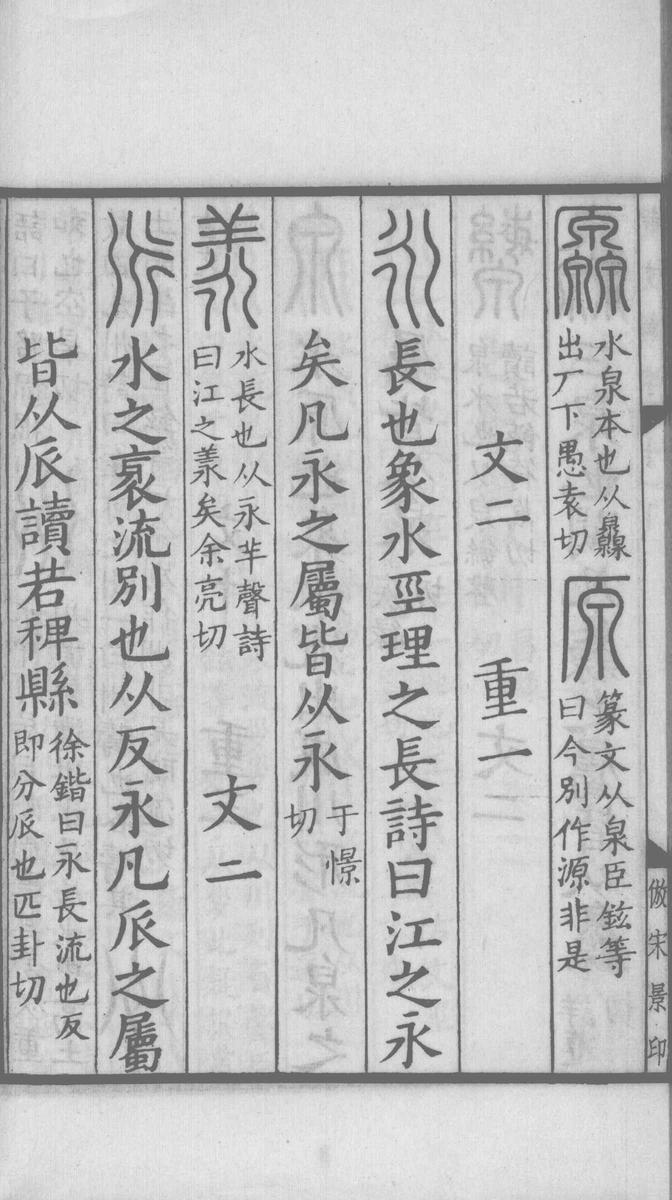 𠫐 水泉本也从灥出厂下愚袁切 原 篆文从泉臣鉉等曰今別作源非是
文二 重一
永 長也象水巠理之長詩曰江之永
矣凡永之屬皆从永 于憬切
羕 水長也从永羊聲詩曰江之羕矣余亮切 文二
𠂢 水之衺流別也从反永凡𠂢之屬
皆从𠂢讀若稗縣 徐鍇曰永長流也反即分𠂢也匹卦切
倣宋景印